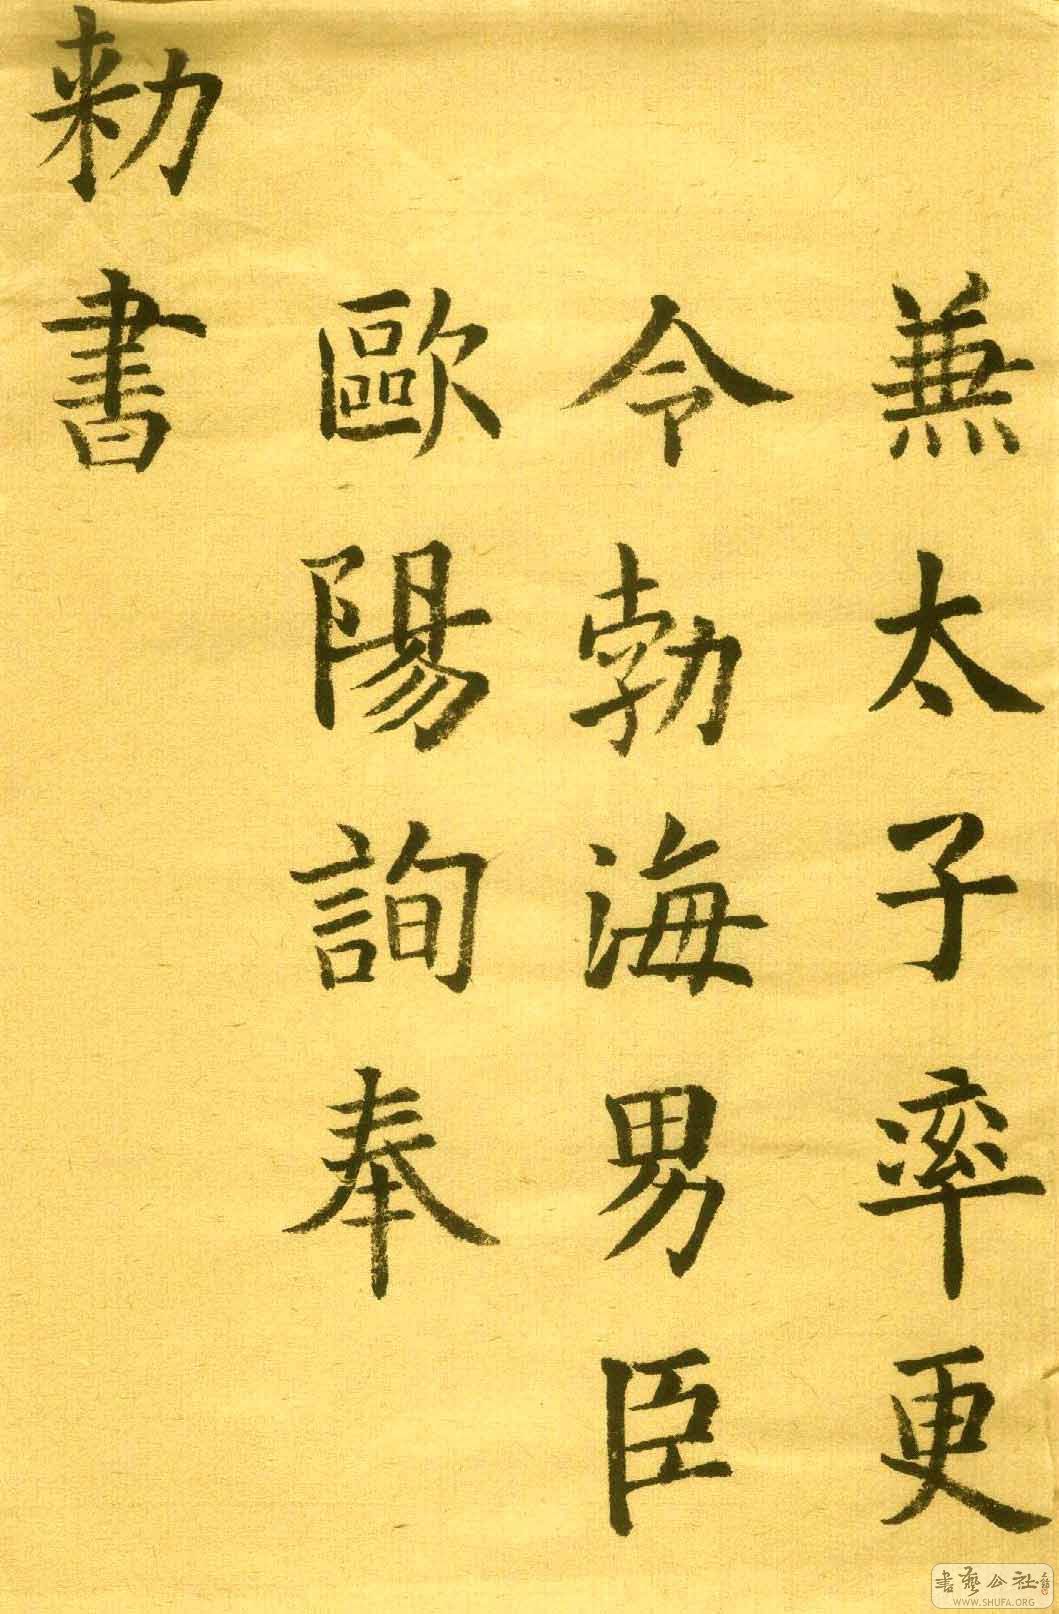 兼太子率更
令勃海男臣
歐陽詢奉
勑書
書藝公社
WWW.SHUFA.ORG